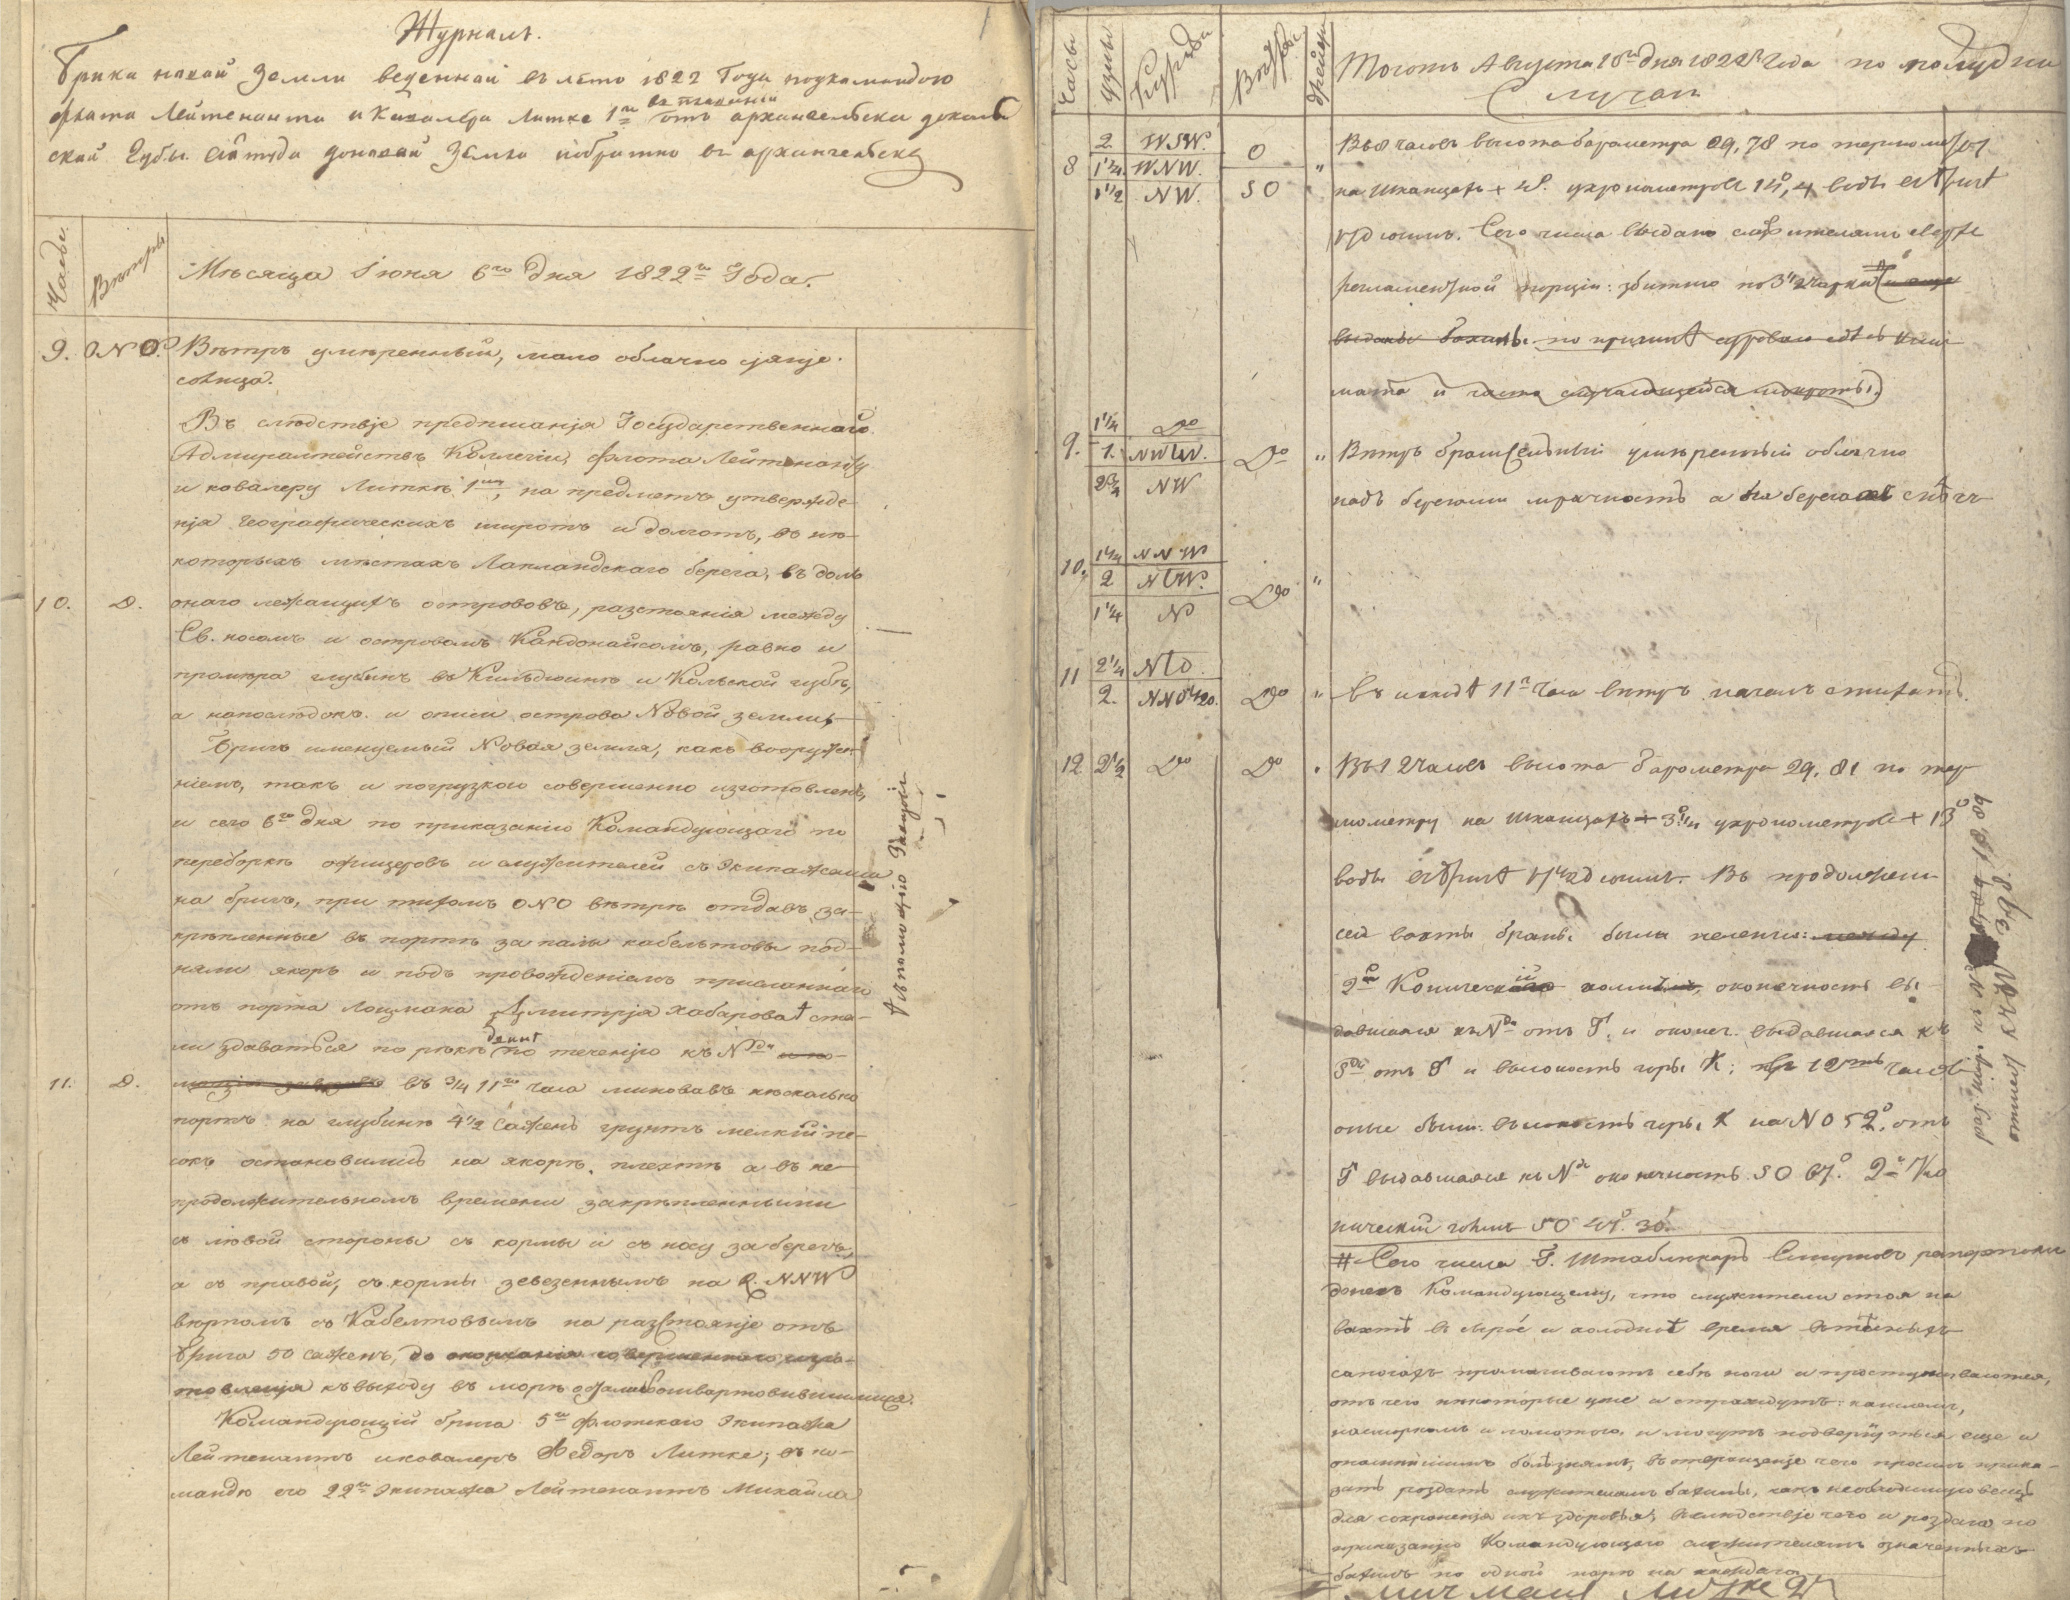 Журналъ.
Брика новой Земли веденной въ лето 1822 Года подкомандою
флота Лейтенанта и Кавалера Литке 1го въ плавании отъ архангельска доколь
ской Губы Оттуда доновой Земли иобратно въ архангельскъ
Часы.
Вѣтры
Мѣсяца Іюня 6го дня 1822го Года.
9. ONO. Вѣтръ умѣренный, мало облачно сіяніе
солнца.
Въ слѣдствіе предписанія Государственнаго
Адмиралтействъ Коллегіи, флота Лейтенанту
и кавалеру Литкѣ 1му, на предметъ утвержде-
нія географическихъ широтъ и долготъ, въ нѣ-
которыхъ мѣстахъ Лапландскаго берега, въ доль
10. D. онаго лежащихъ острововъ, разстоянія между
Св. носомъ и островомъ Кандонайсомъ, равно и
промѣра глубинъ въ Кильдюинѣ и Кольской губѣ,
а напослѣдокъ и описи острова Новой земли,
Бригъ имянуемый Новая земля, какъ вооруже-
ніемъ, такъ и погрузкою совершенно изготовленъ,
и сего 6го дня по приказанію Командующаго по
переборкѣ офицеровъ и служителей съ Экипажами
на бригъ, при тихомъ ONO вѣтрѣ отдавъ за-
крѣпленные въ портѣ за палы кабельтовы под-
няли якорь и подъ провожденіемъ присланнаго
отъ порта Лоцмана Дмитрія Хабарова ста-
ли здаваться по рѣкѣ по теченію къ Nду
11. D. въ ¾ 11го часа миновавъ нѣсколько
портъ на глубинѣ 4½ саженъ грунтъ мелкій пе-
сокъ остановились на якорѣ плехтѣ а въ не-
продолжительномъ времени закрѣпленными
съ лѣвой стороны съ кормы и съ носу за берегъ,
а съ правой, съ кормы завезеннымъ на R. NNW
верпомъ съ Кабельтовымъ на разстояніе отъ
брига 50 саженъ, до окончанія совершеннаго изго-
товленія къ выходу въ море
Командующій брига 5го флотскаго Экипажа
Лейтенантъ икавалеръ Ѳедоръ Литке; въ ко-
манде его 22го Экипажа Лейтенантъ Михайла
Часы
узлы
Курсы
Вѣтры
дрейфъ
Тогожъ Августа 18го дня 1822го Года по полудни
Случаи
8 2 WSW. 0 Въ 8 часовъ высота барометра 29,78 по термометру
1¼ WNW.
1½ NW. SO на шканцахъ + 4°. ухронометровъ 14°,4 воды въ
дюимъ. Сего числа выдано служителямъ сверхъ
регламентной порціи: збитню по 3½ чарки
выданы бахилы по причинѣ суроваго здѣсь кли
мата и часто случающейся мокроты.)
1¼ Do
9. 1. NWtW. Do " Вѣтръ брамсельный умѣренный облачно
2¾ NW надъ берегами мрачность а на берегахъ снѣгъ
10. 1¼ NNW
2 NtW. Do "
1¼ N
11 2¼ NtO.
2. NNO½O. Do " въ исходѣ 11го часа вѣтръ началъ стихать
12 2½ Do Do Въ 12 часовъ высота барометра 29,81 по тер
мометру на шканцахъ + 3°¼ ухронометровъ + 13°
воды дюимъ. Въ продолжени
сей вахты браны были пеленги: между
2й Коническій холмъ, оконечность вы-
давшаяся къ Nду отъ Г. и оконеч. выдавшаяся къ
Sду отъ Г и высокость горы К; въ 12ть часовъ
оные были: высокость горы К на NO 52°, отъ
Г выдавшаяся къ Nду оконечность SO 67°. 2й Ко
ническій холмъ SO 49° 30'.
# Сего числа Г. Штаблекарь Смирновъ рапортомъ
донесъ Командующему, что служители стоя на
вахтѣ въ сырое и холодное время
сапогахъ промачиваютъ себѣ ноги и простуживаются,
отъ чего нѣкоторые уже и страждутъ: кашлемъ,
насморкомъ и ломотою. и могутъ подвергнуться еще и
опаснѣйшимъ болѣзнямъ, въ отвращеніе чего просилъ прика-
зать роздать служителямъ бахилы, какъ необходимую вещь
для сохраненія ихъ здоровья; вслѣдствіе чего и роздано по
приказанію Командующаго служителямъ означенныхъ
бахилъ по одной паре на каждаго.
Мичманъ Литке 2й